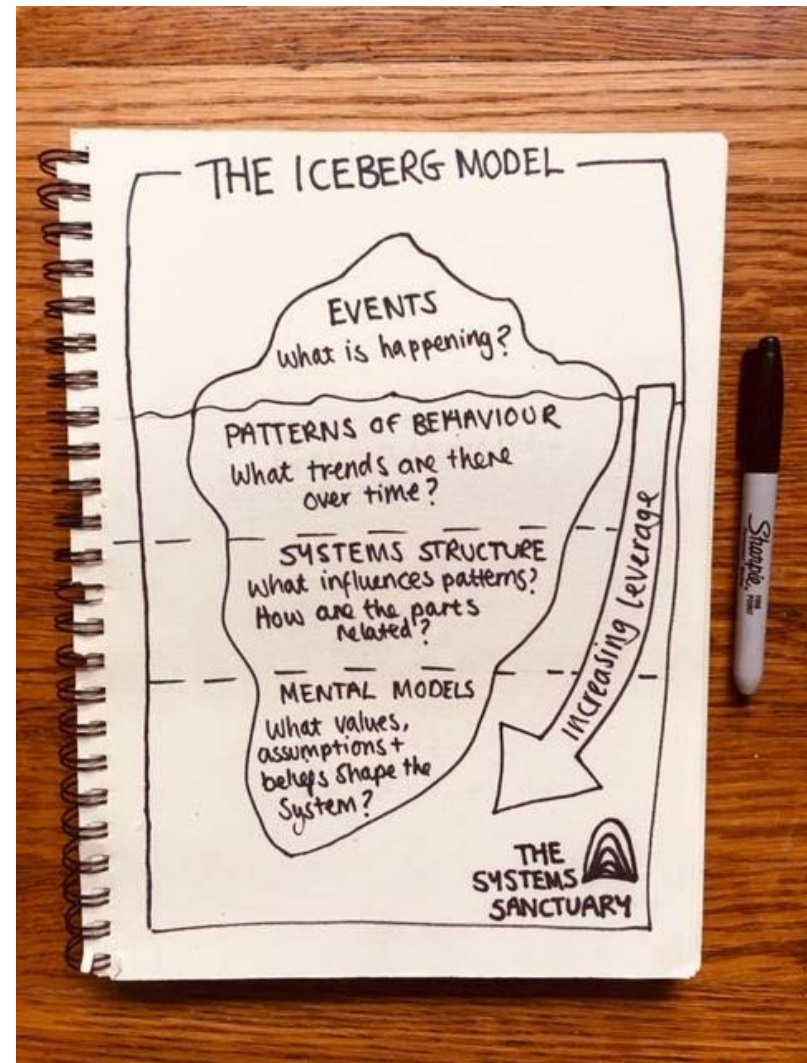 THE ICEBERG MODEL
EVENTS
What is happening?
PATTERNS OF BEHAVIOUR
What trends are there
over time?
SYSTEMS STRUCTURE
What influences patterns?
How are the parts
related?
MENTAL MODELS
What values,
assumptions +
beliefs shape the
system?
Increasing leverage
THE
SYSTEMS
SANCTUARY
Sharpie
FINE
POINT